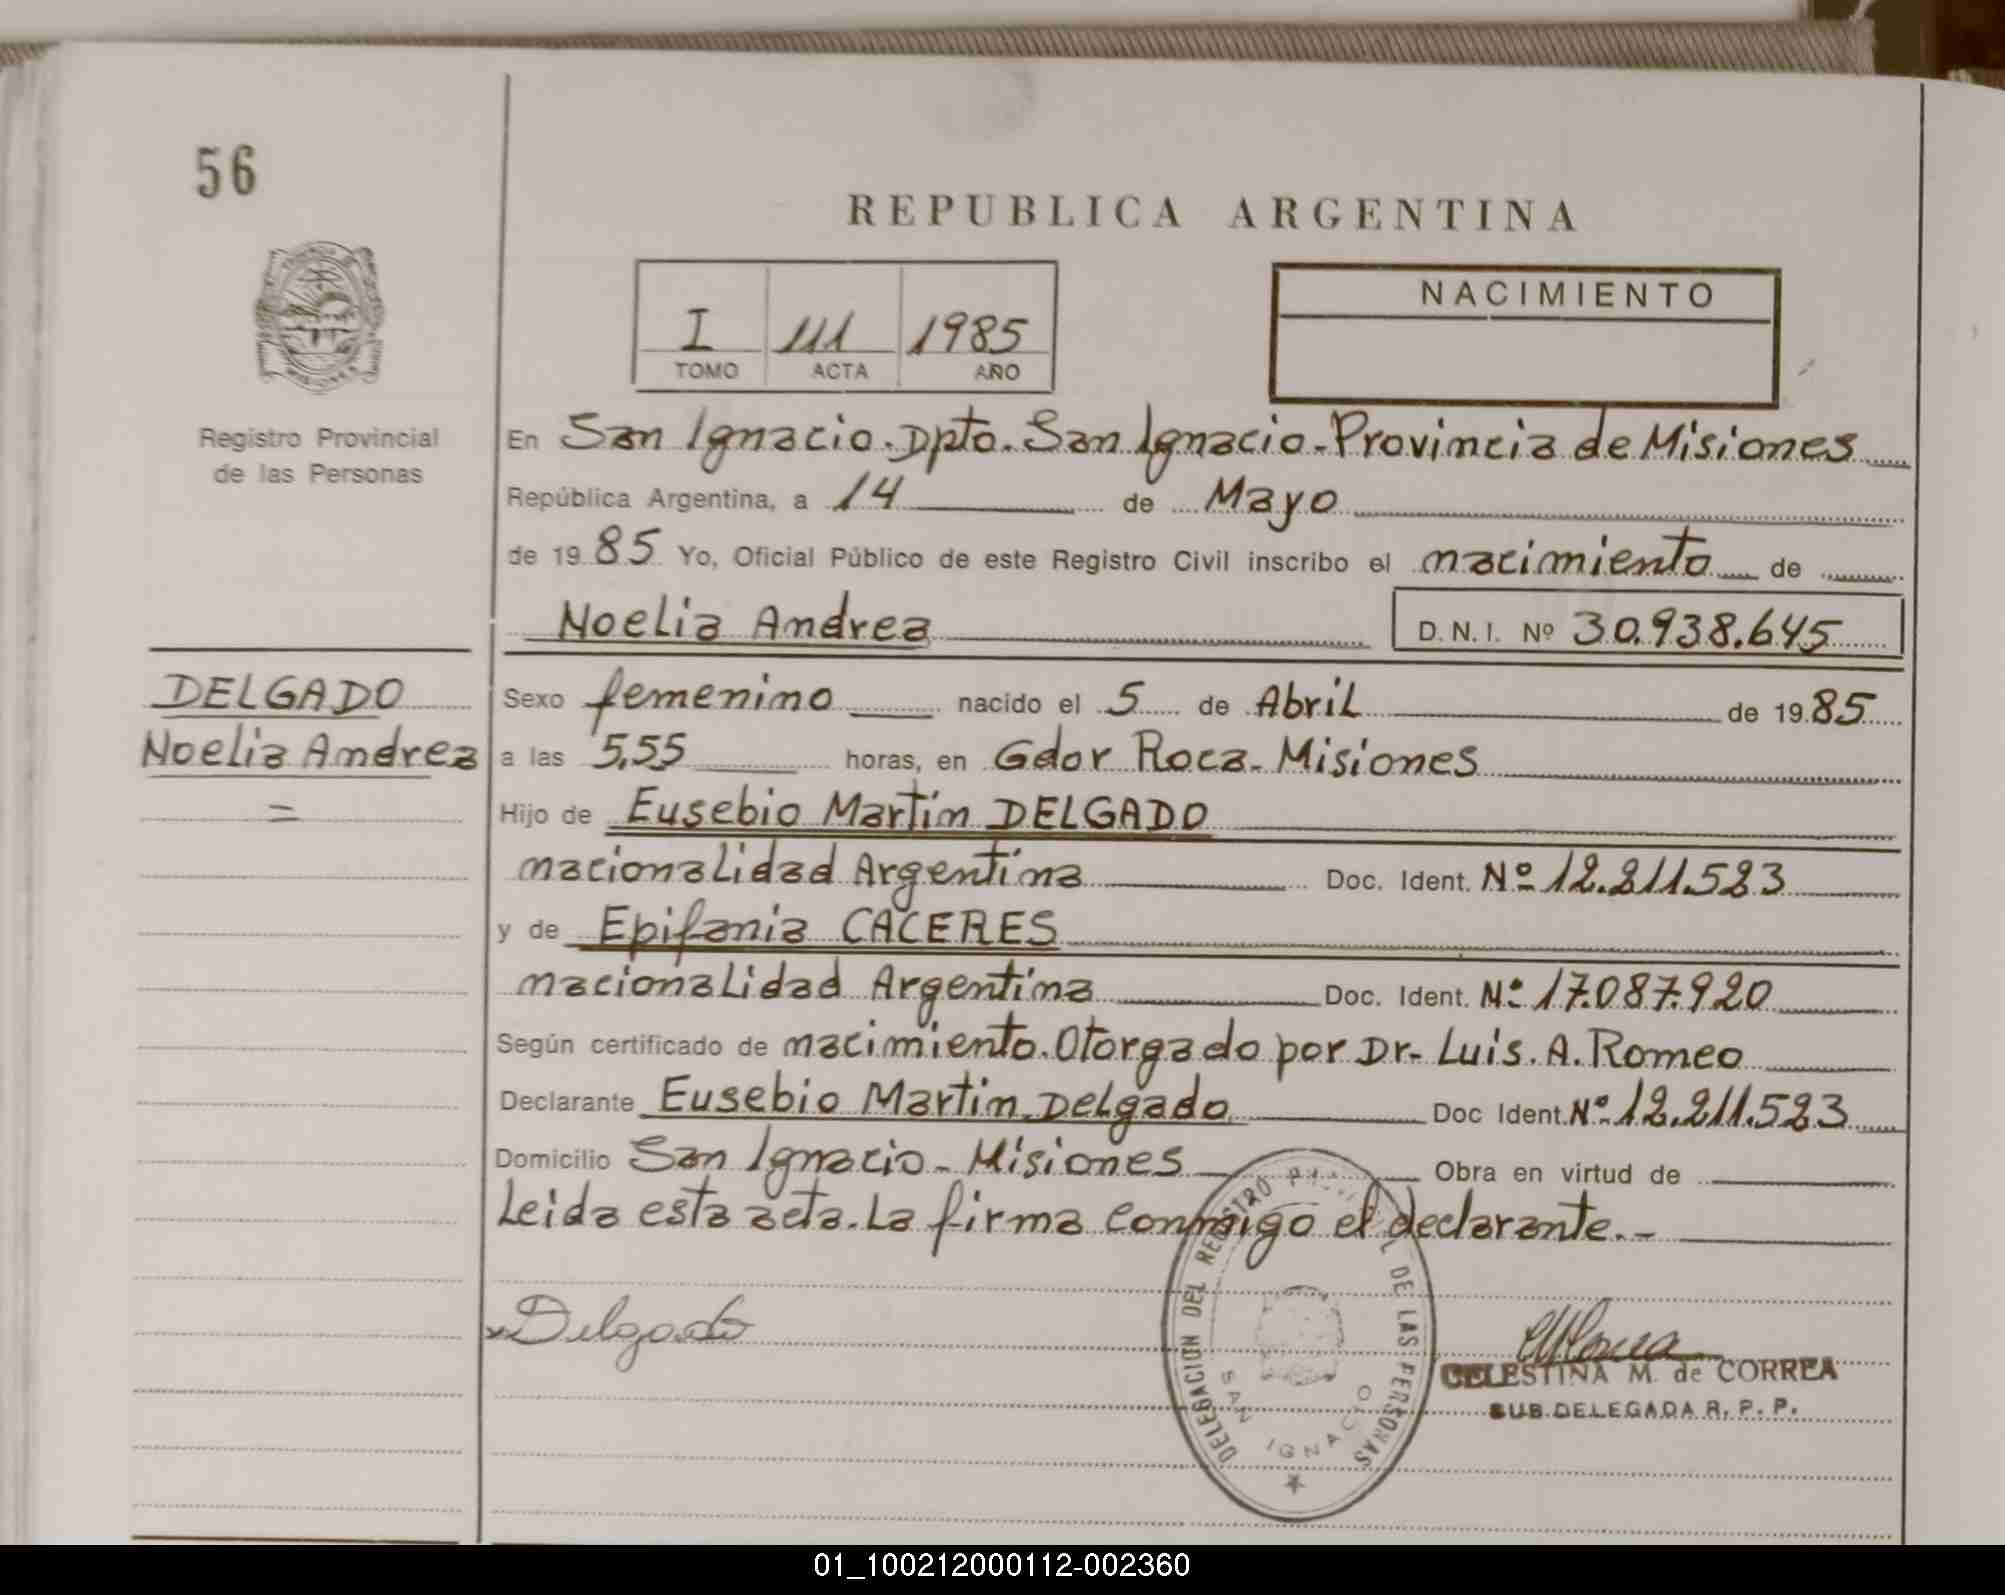 56
REPUBLICA ARGENTINA
I 111 1985
TOMO ACTA AÑO
NACIMIENTO
Registro Provincial
de las Personas
En San Ignacio. Dpto. San Ignacio - Provincia de Misiones
República Argentina, a 14 de Mayo
de 1985 Yo, Oficial Público de este Registro Civil inscribo el nacimiento de
Noelia Andrea D.N.I. Nº 30.938.645
DELGADO
Noelia Andrea
=
Sexo femenino nacido el 5 de Abril de 1985
a las 5,55 horas, en Gdor Roca - Misiones
Hijo de Eusebio Martin DELGADO
nacionalidad Argentina Doc. Ident. Nº 12.211.523
y de Epifania CACERES
nacionalidad Argentina Doc. Ident. Nº 17.087.920
Según certificado de nacimiento. Otorgado por Dr- Luis. A. Romeo
Declarante Eusebio Martin Delgado Doc Ident. Nº 12.211.523
Domicilio San Ignacio - Misiones Obra en virtud de
Leida esta acta. La firma conmigo el declarante.-
Delgado
DELEGACION DEL REGISTRO DE LAS PERSONAS
SAN IGNACIO
CELESTINA M. de CORREA
SUB DELEGADA R. P. P.
01_100212000112-002360